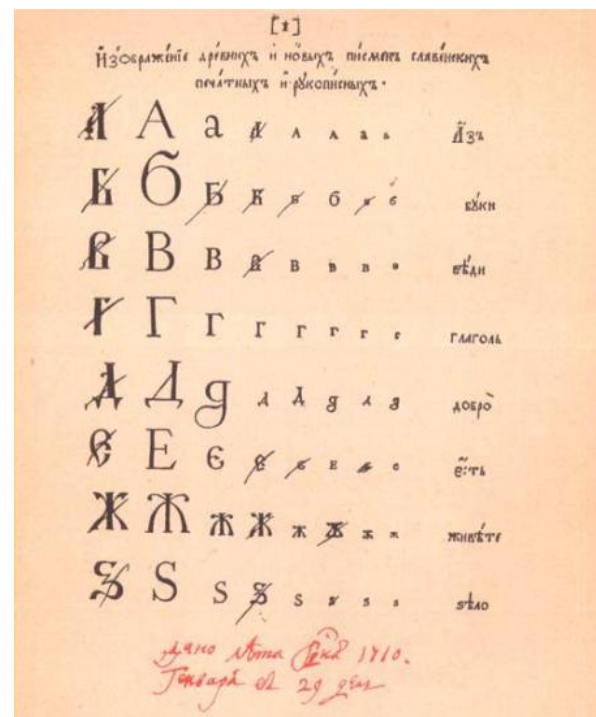 [1]
И҆зѡбраже́нїе дре́внихъ и҆ но́выхъ пи́сменъ славе́нскихъ
печа́тныхъ и҆ рꙋкопи́сныхъ.
А А а А А А а а А҆́зъ
Б Б Б Б Б б Б б бꙋ́ки
В В В В В В В В вѣ́ди
Г Г Г Г Г Г Г Г глаго́ль
Д Д д Д Д д Д д добро̀
Є Е є Є Є Е Є є є҆́сть
Ж Ж Ж Ж Ж Ж Ж Ж живѣ́те
Ѕ Ѕ Ѕ Ѕ Ѕ ѕ ѕ ѕ ѕѣло̀
дано лѣта 1710.
Генваря в 29 день